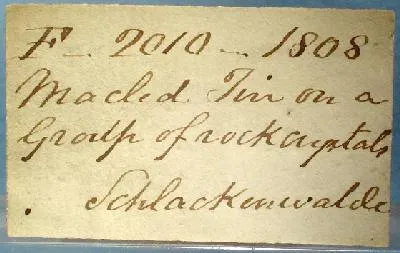 F - 2010 - 1808
Macled Tin on a
Group of rock crystals
. Schlackenwalde